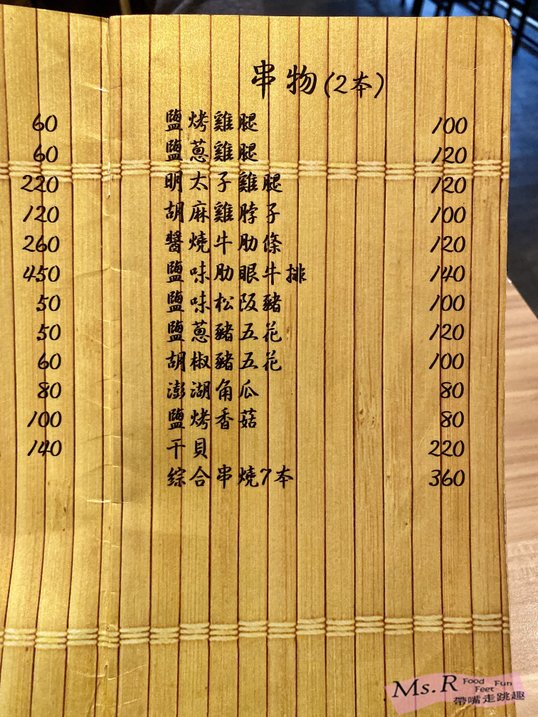 串物(2本)
鹽烤雞腿 100
鹽蔥雞腿 120
明太子雞腿 120
胡麻雞脖子 100
醬燒牛肋條 120
鹽味肋眼牛排 140
鹽味松阪豬 100
鹽蔥豬五花 120
胡椒豬五花 100
澎湖角瓜 80
鹽烤香菇 80
干貝 220
綜合串燒7本 360
60
60
220
120
260
450
50
50
60
80
100
140
Ms.R Food Fun Feet
帶嘴走跳趣